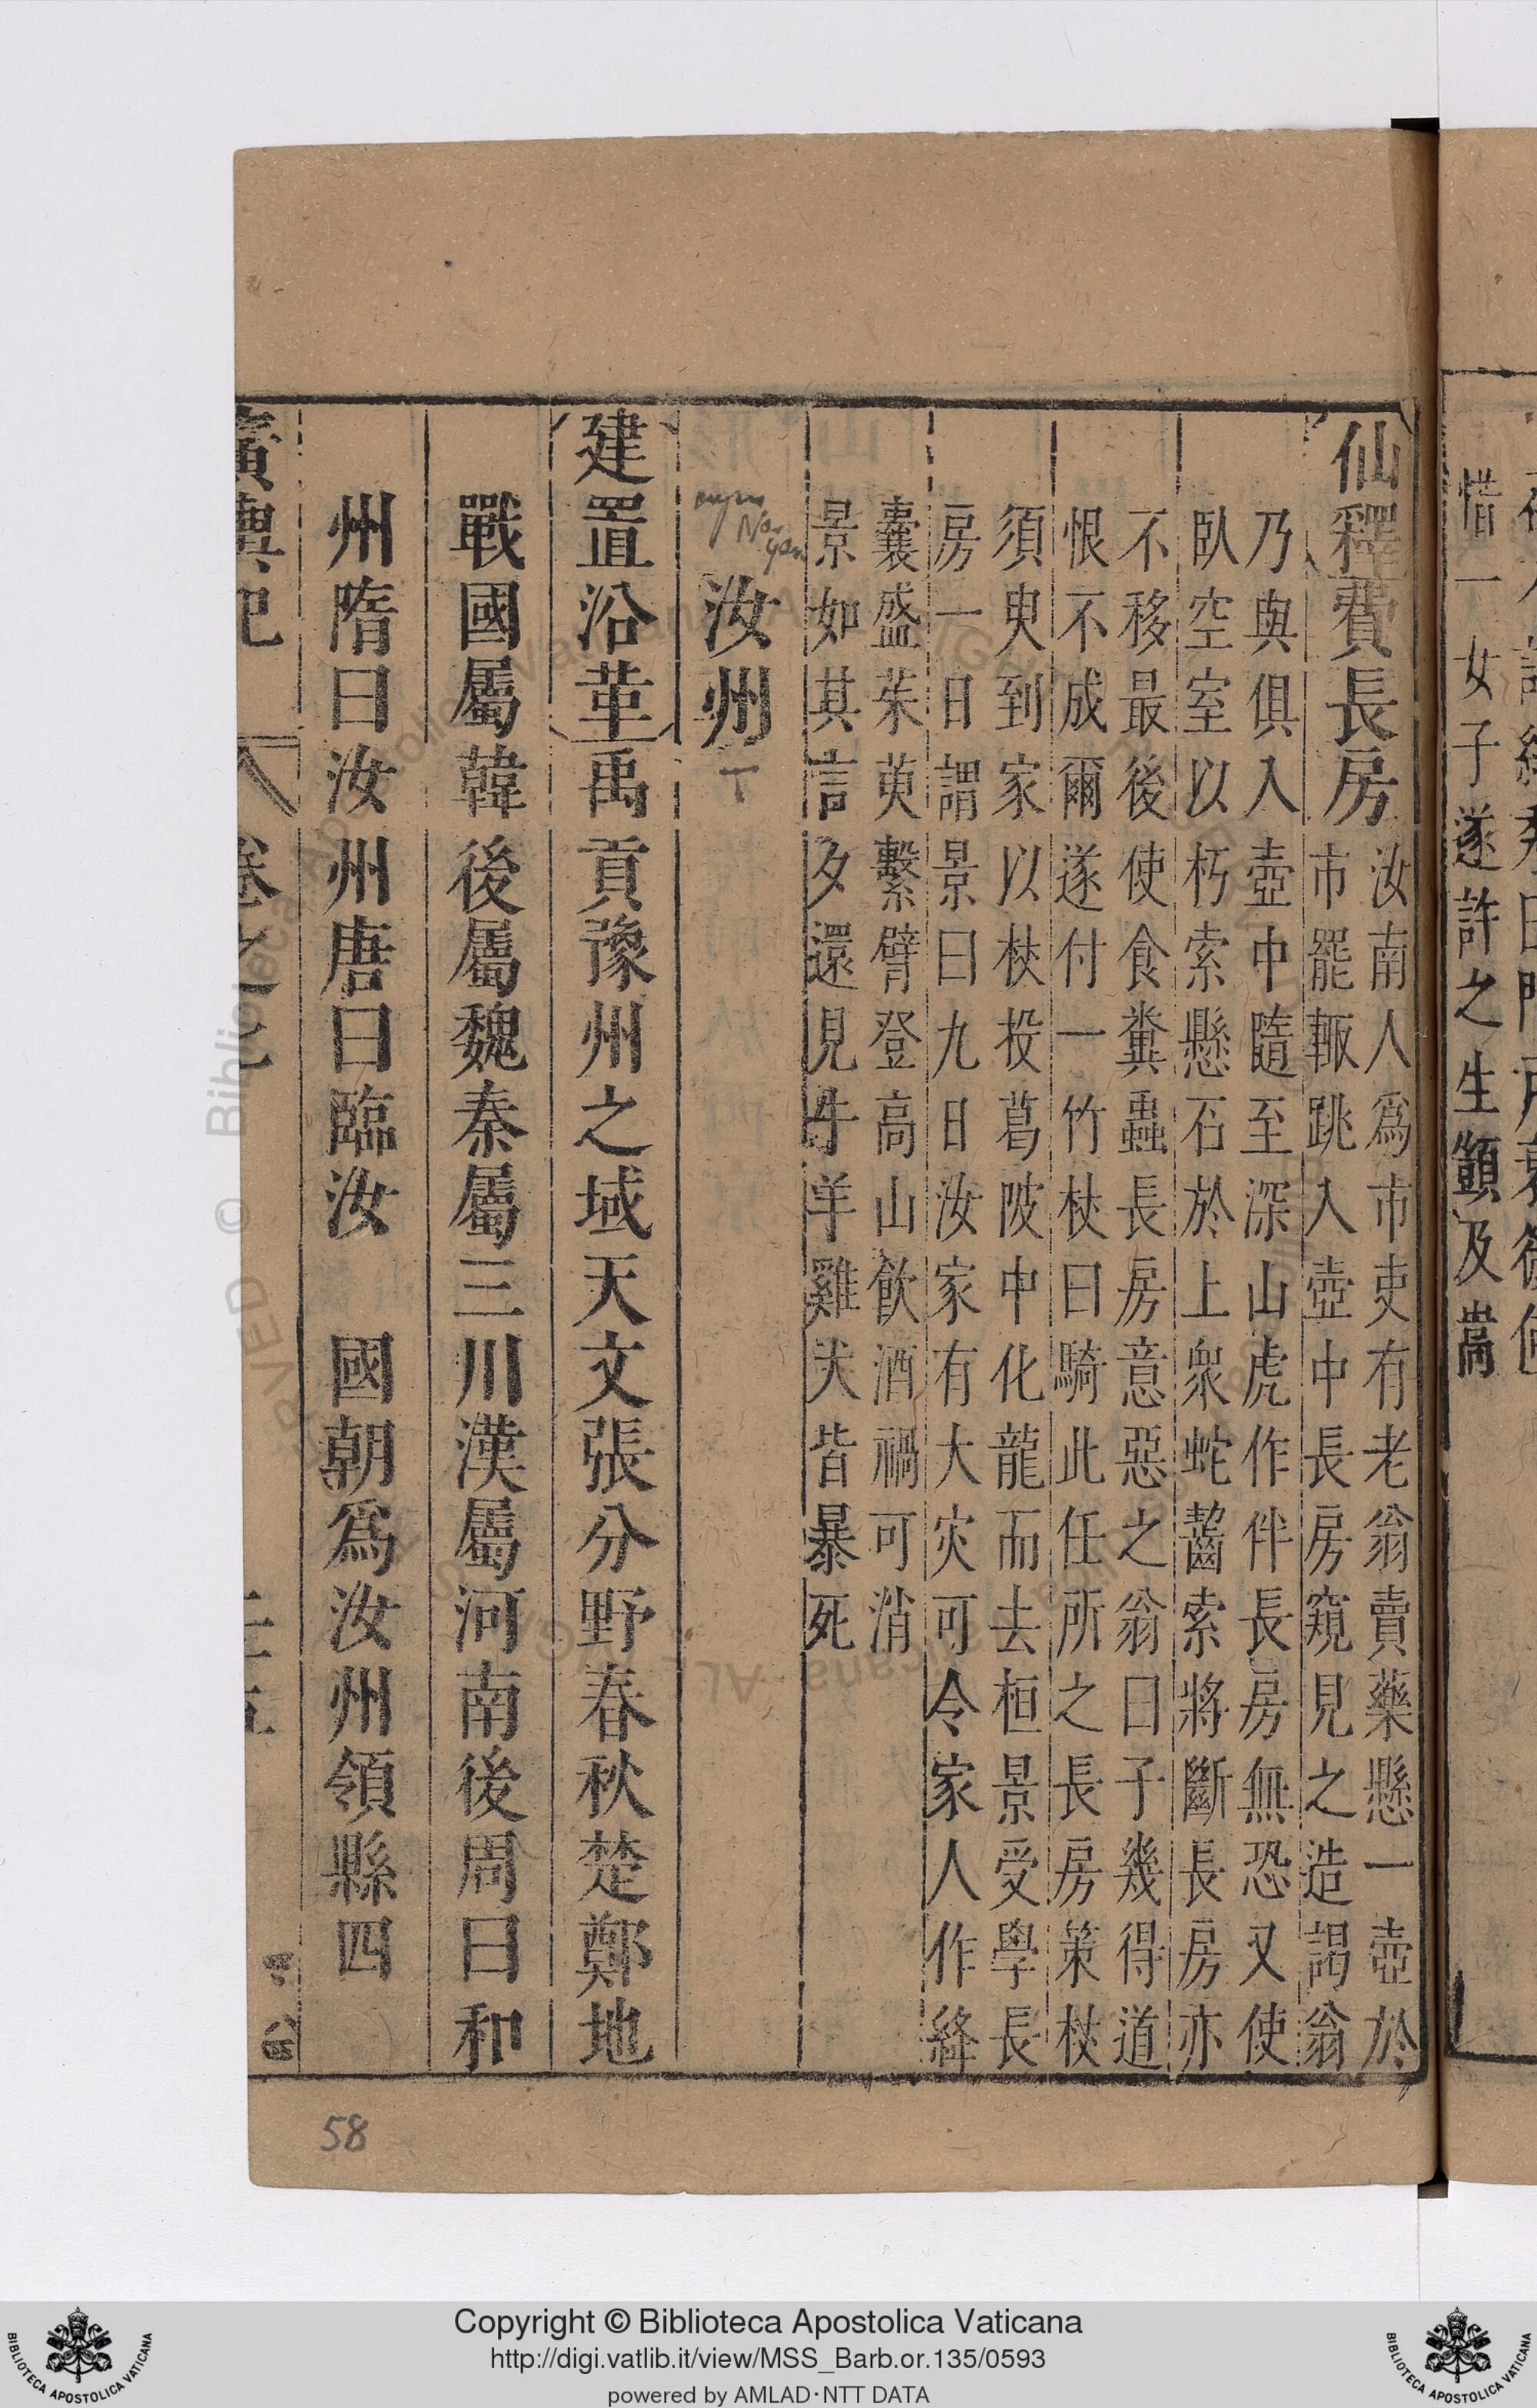 惜一女子遂許之生顗及嵩
仙釋費長房汝南人爲市吏有老翁賣藥懸一壺於
市罷輒跳入壺中長房窺見之造謁翁
乃與俱入壺中隨至深山虎作伴長房無恐又使
臥空室以朽索懸石於上衆蛇齧索將斷長房亦
不移最後使食糞蟲長房意惡之翁曰子幾得道
恨不成爾遂付一竹杖曰騎此任所之長房策杖
須臾到家以杖投葛陂中化龍而去桓景受學長
房一日謂景曰九日汝家有大灾可令家人作絳
囊盛茱萸繫臂登高山飲酒禍可消
景如其言夕還見牛羊雞犬皆暴死
汝州
建置沿革禹貢豫州之域天文張分野春秋楚鄭地
戰國屬韓後屬魏秦屬三川漢屬河南後周曰和
州隋曰汝州唐曰臨汝 國朝爲汝州領縣四
廣輿記 卷之七
58
Copyright © Biblioteca Apostolica Vaticana
http://digi.vatlib.it/view/MSS_Barb.or.135/0593
powered by AMLAD·NTT DATA
BIBLIOTECA APOSTOLICA VATICANA
BIBLIOTECA APOSTOLICA VATICANA